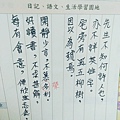 日記‧語文‧生活學習園地
先生不知何許人也，
亦不詳其姓字，
宅旁有五柳樹，
因以為號焉。
閑靜少言，不慕榮利。
好讀書，不求甚解，
每有會意，便欣然忘食